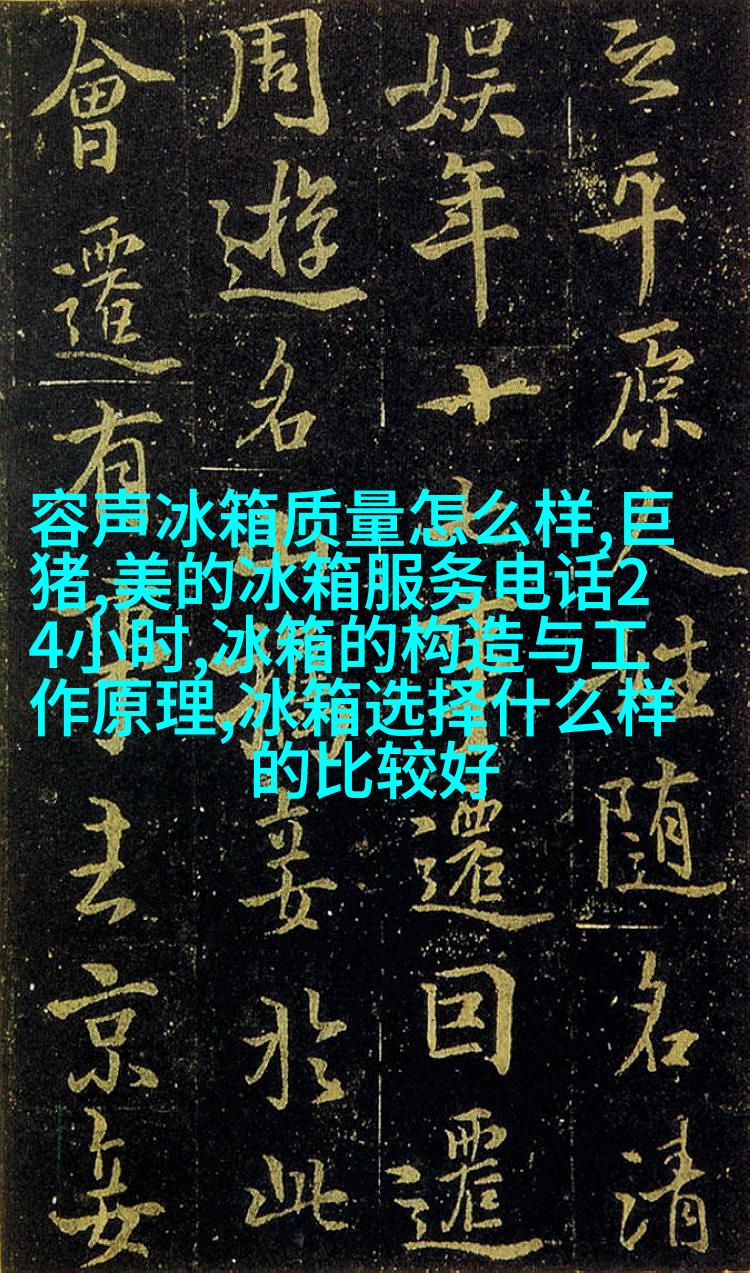 容声冰箱质量怎么样,巨
猪,美的冰箱服务电话2
4小时,冰箱的构造与工
作原理,冰箱选择什么样
的比较好
之平原人姓随名清
娱年十七事遷因遷
周遊名山携妾於此
會遷有事去京妾